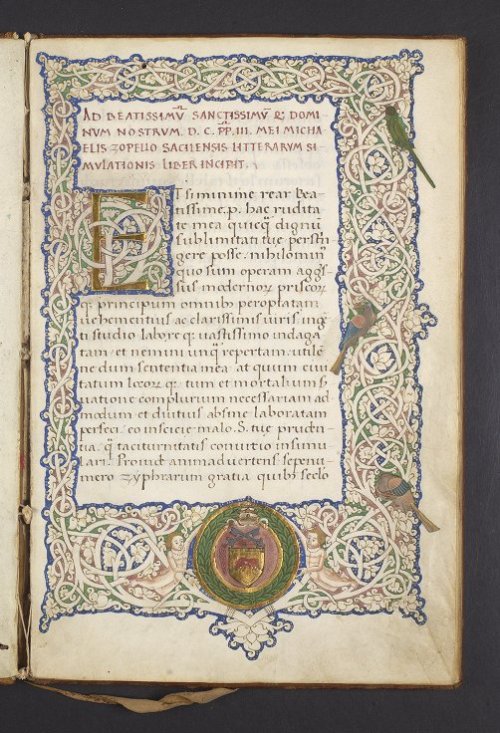 AD BEATISSIMṼ SANCTISSIMṼ Q; DOMI
NVM NOSTRVM. D. C. PP̃. III. MEI MICHA
ELIS ZOPELLO SACILENSIS LITTERARVM SI
MVLATIONIS LIBER INCIPIT.
ETsi minime rear Bea
tissime .p. hac rudita
te mea quicq̃ dignũ
sublimitati tue perstin̄
gere posse. nihilominꝰ
quo sum operam
modernoꝝ priscoꝝ
q; principum omnibꝰ peroptatam
uehementius ac clarissimis uiris
ti studio labore q; uastissimo indaga
tam et nemini unq̃ repertam. utile
ne dum sententia mea at quum
tatum tum et mortalium
uatione complurium necessariam ad
modum et diutius absque laboratam
perfeci. S. tue pruden
tia. q̃ taciturnitatis conuitio insimu
lari. Proinde animaduertens sepenu
mero zyphrarum gratia quibꝰ seclo